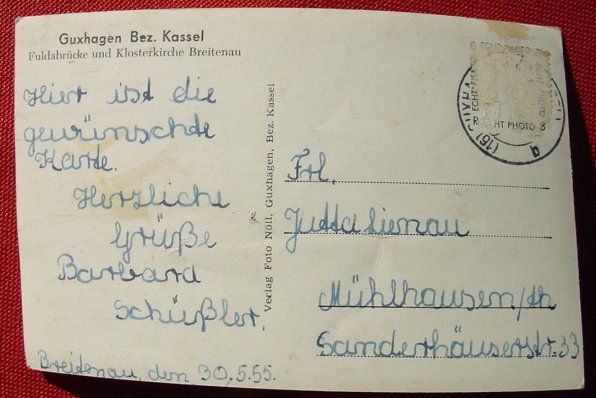 Guxhagen Bez. Kassel
Fuldabrücke und Klosterkirche Breitenau
Hier ist die
gewünschte
Karte.
Herzliche
Grüße
Barbara
Schüßler.
Breitenau, den 30.5.55.
Verlag Foto Nöll, Guxhagen, Bez. Kassel
Frl.
Jutta Lienau
Mühlhausen/th
Sanderhäuserstr. 33
(16)
b
ECHT PHOTO